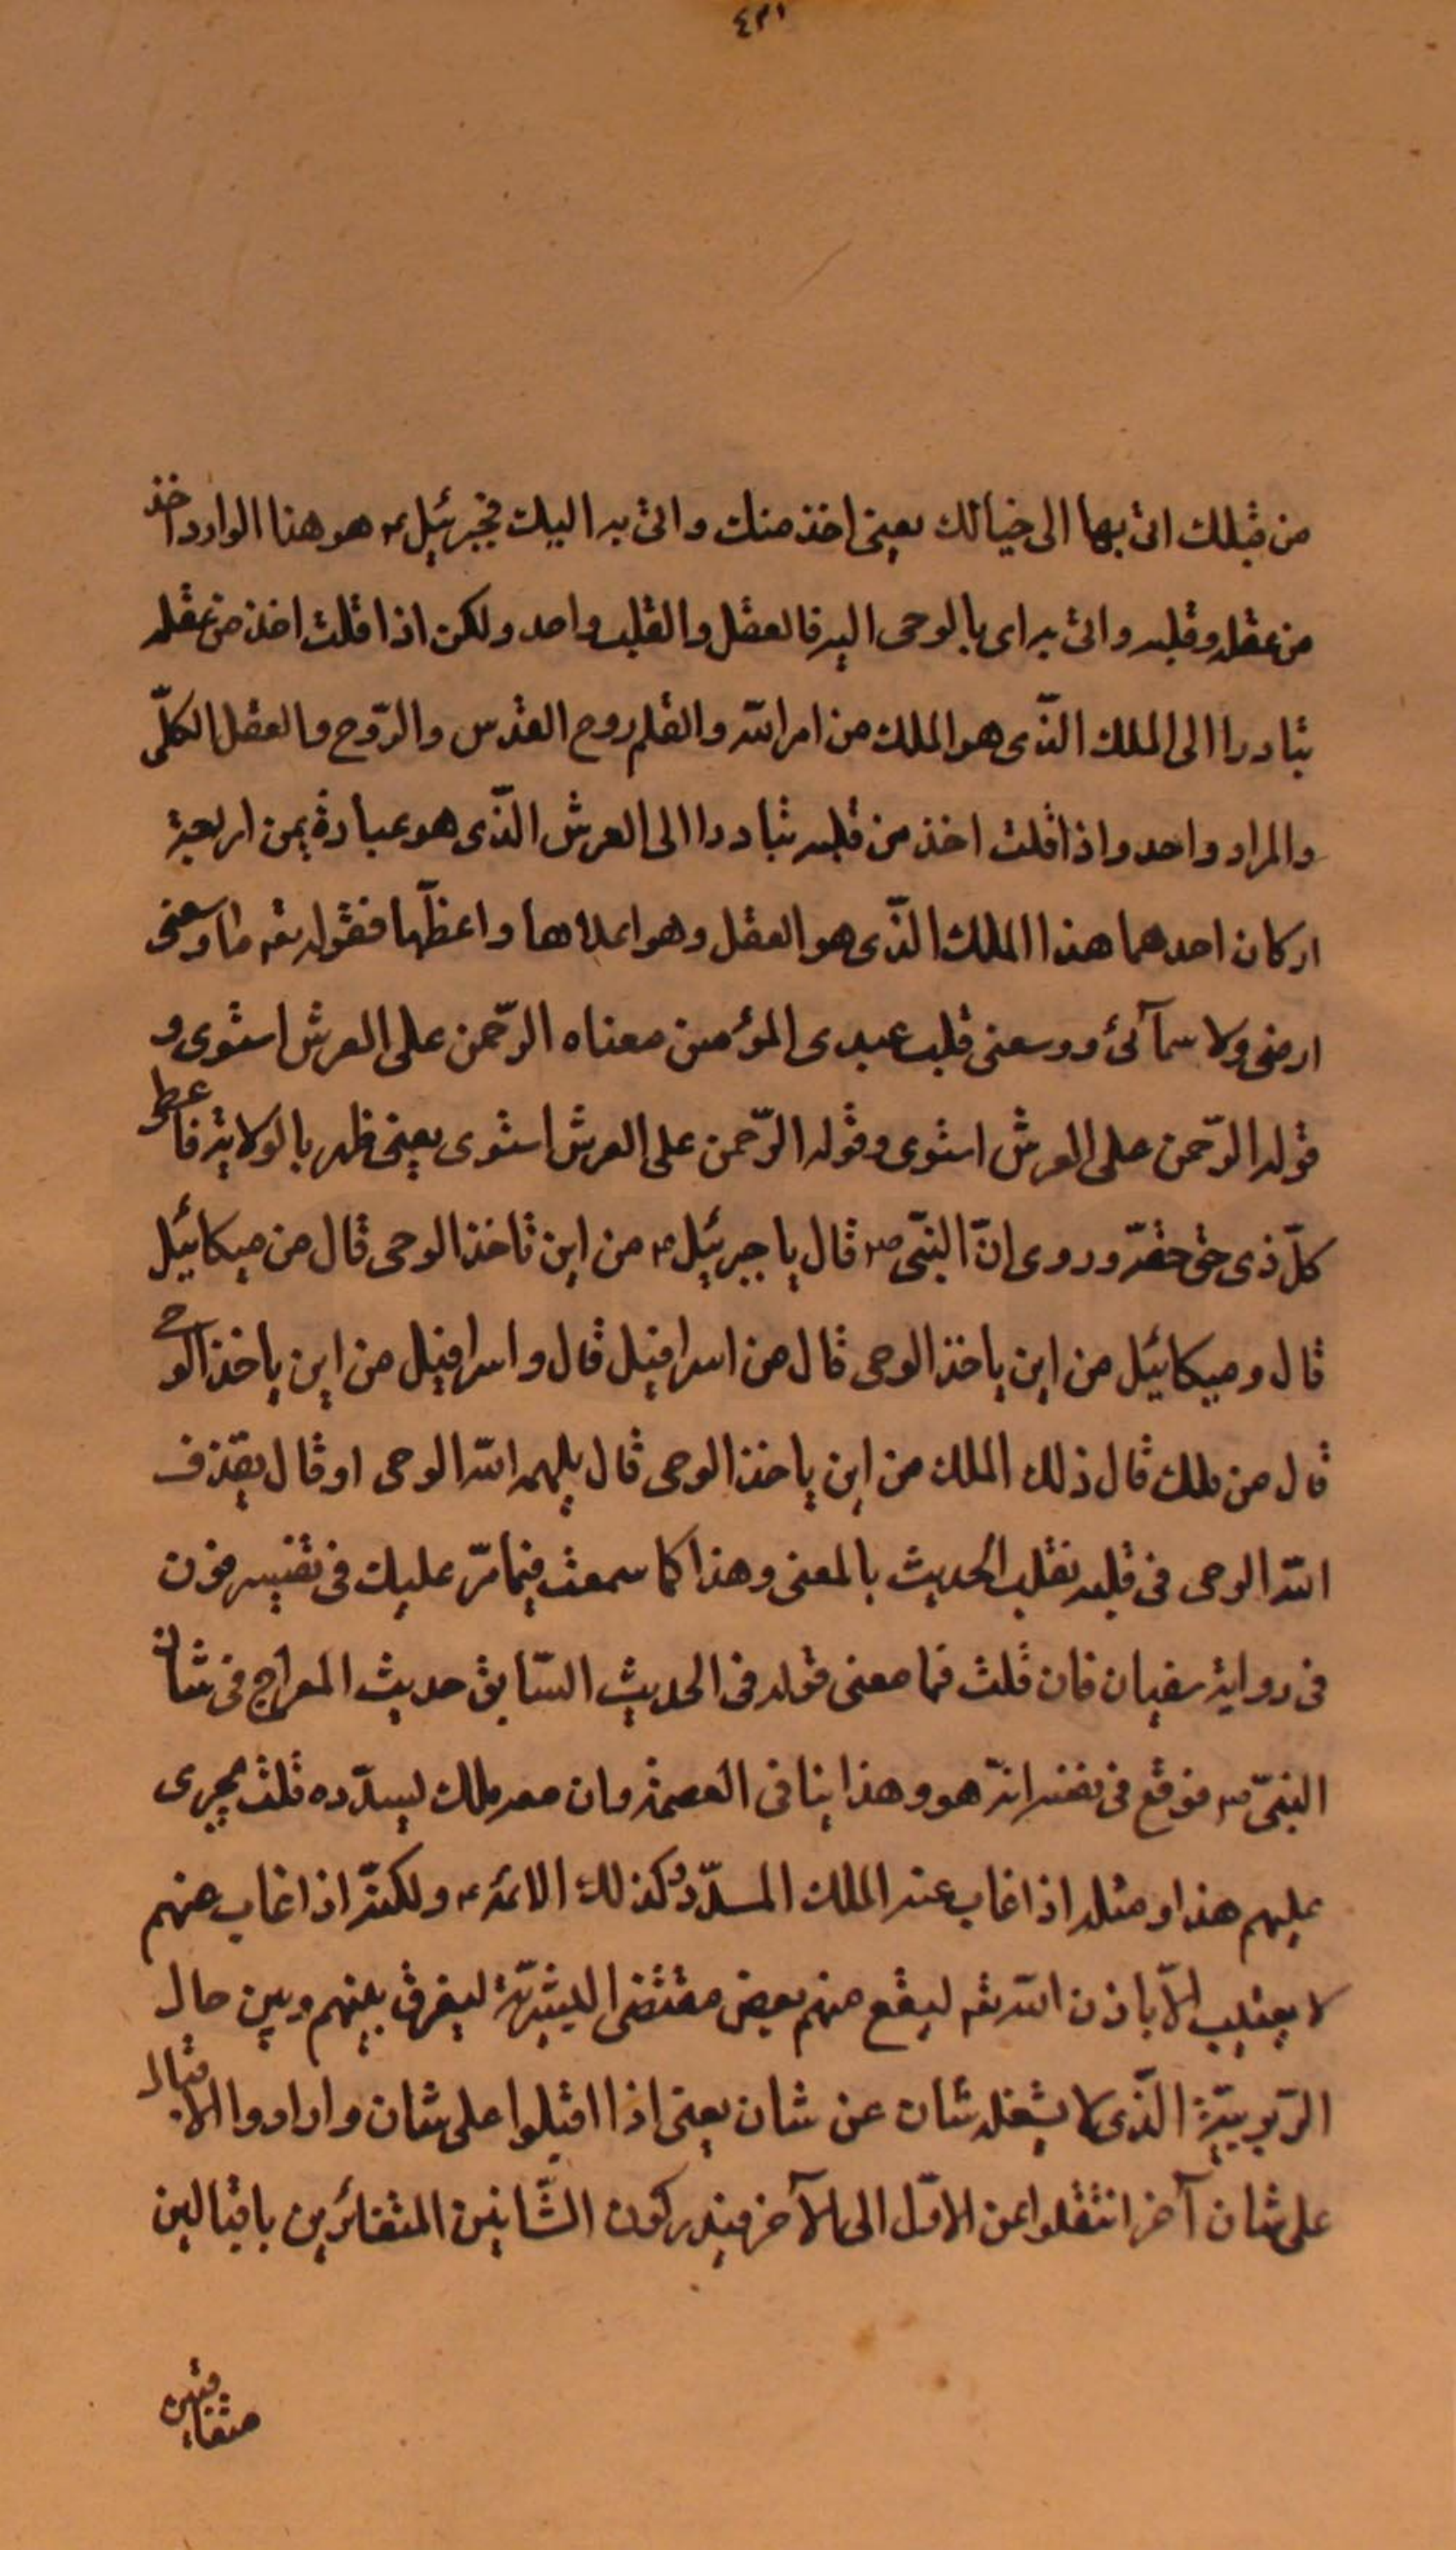 ٤٣١
من قبلك اتى بها الى خيالك يعنى اخذ منك واتى به اليك فجبرئيل ع هو هنا الوارد اخذ
من عقله وقلبه واتى به اى بالوحى اليه فالعقل والقلب واحد ولكن اذا قلت اخذ من عقله
تبادرا الى الملك الّذى هو الملك من امر اللّه والقلم روح القدس والرّوح والعقل الكلّى
والمراد واحد واذا قلت اخذ من قلبه تبادرا الى العرش الّذى هو عبارة عن اربعة
اركان احدهما هذا الملك الّذى هو العقل وهو اعلاها واعظمها فقوله تعه ما وسعنى
ارضى ولا سمآئى ووسعنى قلب عبدى المؤمن معناه الرّحمن على العرش استوى و
قوله الرّحمن على العرش استوى وقوله الرّحمن على العرش استوى يعنى ظهر بالولاية فاعطى
كلّ ذى حق حقّه وروى انّ النبّى ص قال يا جبرئيل ع من اين تاخذ الوحى قال من ميكائيل
قال وميكائيل من اين ياخذ الوحى قال من اسرافيل قال واسرافيل من اين ياخذ الوحى
قال من ملك قال ذلك الملك من اين ياخذ الوحى قال يلهمه اللّه الوحى او قال يقذف
اللّه الوحى فى قلبه نقلت الحديث بالمعنى وهذا كما سمعت فيما مرّ عليك فى تفسير ن
فى رواية سفيان فان قلت فما معنى قوله فى الحديث السّابق حديث المعراج فى شان
النبّى ص فوقع فى نفسه انّه هو وهذا ينافى العصمة وان معه ملك ليسدّده قلت يجرى
عليهم هذا ومثله اذا غاب عنه الملك المسدّد وكذلك الائمة ع ولكنّه اذا غاب عنهم
لا يغيب الّا باذن اللّه تعه ليقع منهم بعض مقتضى البشريّة ليفرق بينهم وبين حال
الرّبوبيّة الّذى لا يشغله شان عن شان يعنى اذا اقبلوا على شان وارادوا الاقبال
على شان آخر انتقلوا عن الاوّل الى الآخر فيدركون الشّانين المتغائرين باقبالين
متعاقبين